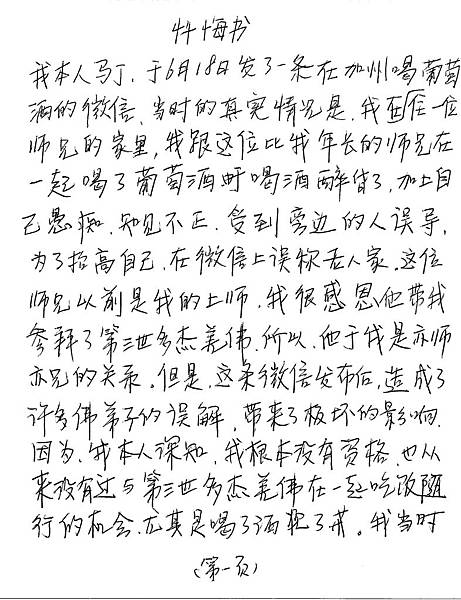 忏悔书
我本人马丁，于6月18日发了一条在加州喝葡萄
酒的微信，当时的真实情况是，我在一位
师兄的家里，我跟这位比我年长的师兄在
一起喝了葡萄酒时喝酒醉了，加上自
己愚痴，知见不正，受到旁边的人误导，
为了抬高自己，在微信上误称老人家。这位
师兄以前是我的上师，我很感恩他带我
参拜了第三世多杰羌佛，所以，他于我是亦师
亦兄的关系。但是，这条微信发布后，造成了
许多佛弟子的误解，带来了极坏的影响，
因为，我本人深知，我根本没有资格，也从
来没有过与第三世多杰羌佛在一起吃饭随
行的机会，尤其是喝了酒犯了戒。我当时
（第一页）